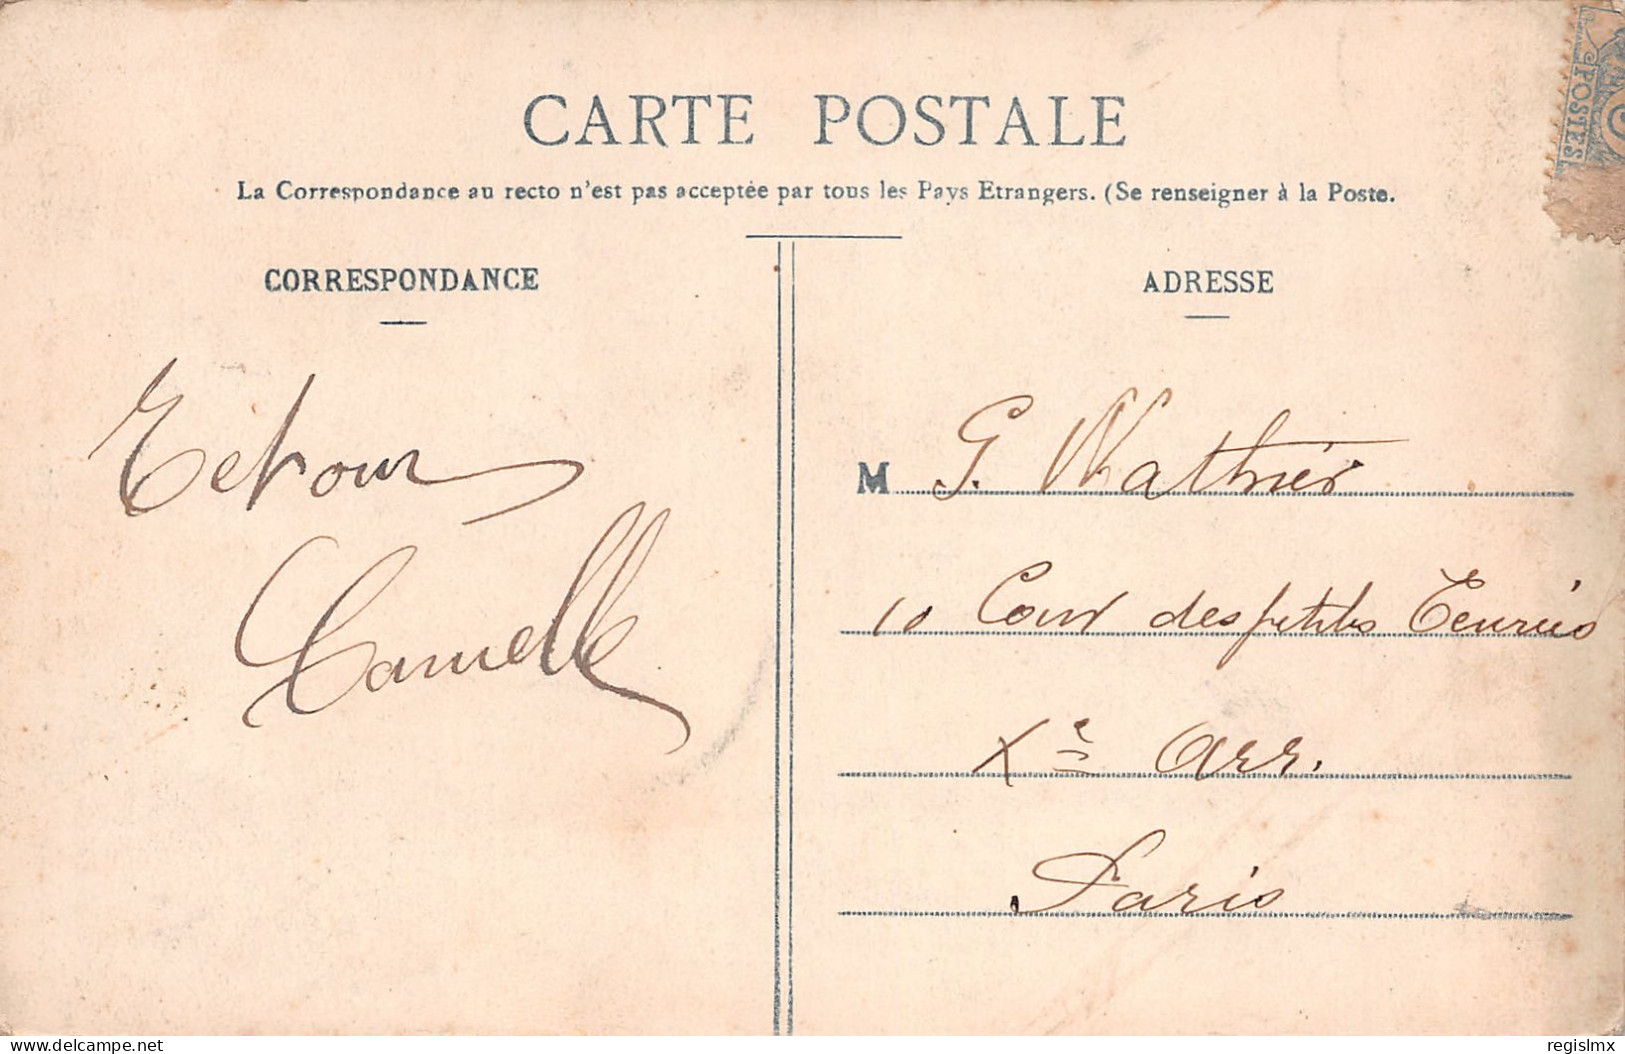 CARTE POSTALE
La Correspondance au recto n'est pas acceptée par tous les Pays Etrangers. (Se renseigner à la Poste.
CORRESPONDANCE
Retour
Camille
ADRESSE
M G. Mathier
10 Cour des petites Ecuries
Xe Arr.
Paris
POSTES
delcampe.net
regislmx